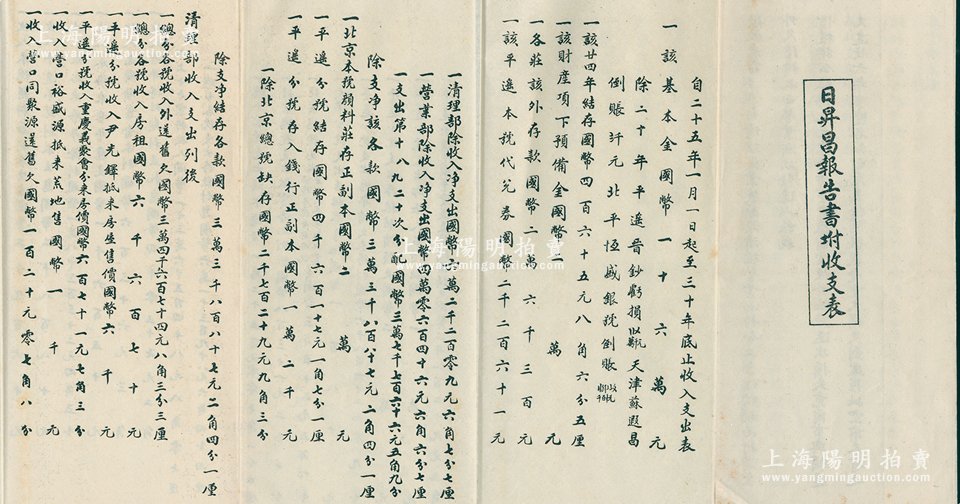 日昇昌報告書坿收支表
自二十五年一月一日起至三十年底止收入支出表
一該基本金國幣一十六萬元
除二十年平遙晉鈔虧損 天津蘇遐昌
倒賬 元北平恆盛銀號倒賬
一該廿四年結存國幣四百六十五元八角六分五厘
一該財產項下預備金國幣二萬元
一各莊該外存款國幣二萬六千三百元
一該平遙本號代兌券國幣二千二百六十一元
一清理部除收入净支出國幣六萬二千二百零九元六角七分七厘
一營業部除收入净支出國幣四萬零六百四十六元六角六分七厘
一支出第十八九二十次分配國幣三萬七千七百六十六元五角九分
除支净該各款國幣三萬三千八百八十七元二角四分一厘
一北京本號顏料莊存正副本國幣二萬元
一平遙分號結存國幣四千六百一十七元一角七分一厘
一平遙分號存入錢行正副本國幣一萬二千元
一除北京總號缺存國幣二千七百二十九元九角三分
除支净結存各款國幣三萬三千八百八十七元二角四分一厘
清理部收入支出列後
一總分各號收入外送舊欠國幣三萬四千六百七十四元八角三分三厘
一總分各號收入房租國幣六千六百七十元
一平遙分號收入尹光鐸抵來房坐售價國幣六千元
一平遙分號收入重慶義飲會分來房價國幣六百七十一元七角三分
一收入營口裕盛源抵來荒地售國幣一千元
一收入營口同聚源送舊欠國幣一百二十元零七角八分
上海陽明拍賣
yangmingauction.com
上海陽明拍賣
www.yangmingauction.com